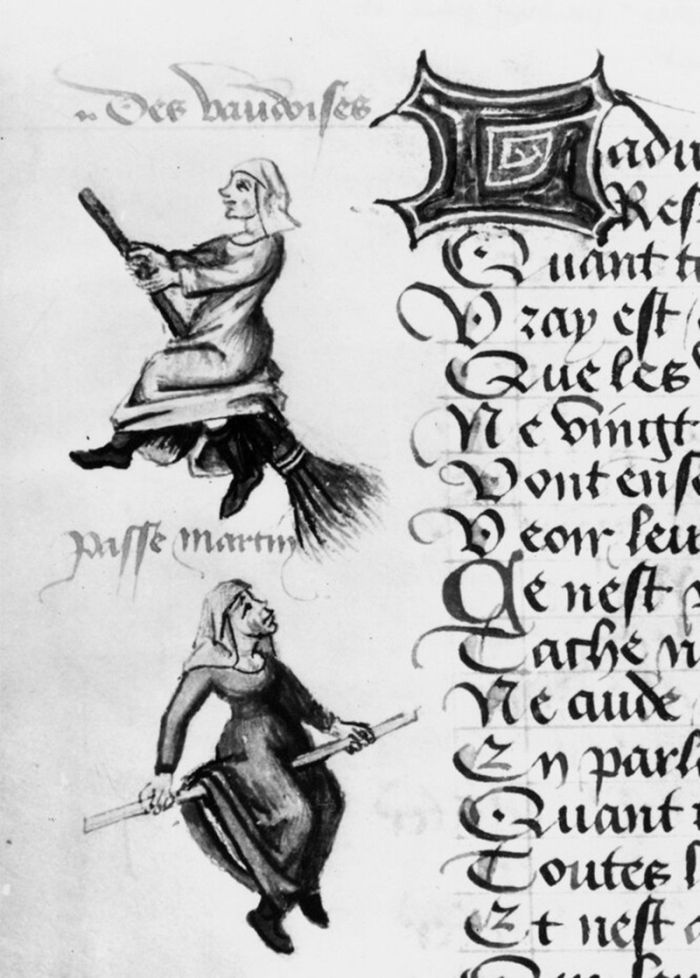 Des vaudoises
passe martin
Ladu
Res
Quant t
Vray est
Que les
Ne vingt
Vont ense
Veoir leu
Ce nest
Tache
Ne aude
En parl
Quant
Toutes l
Et nest